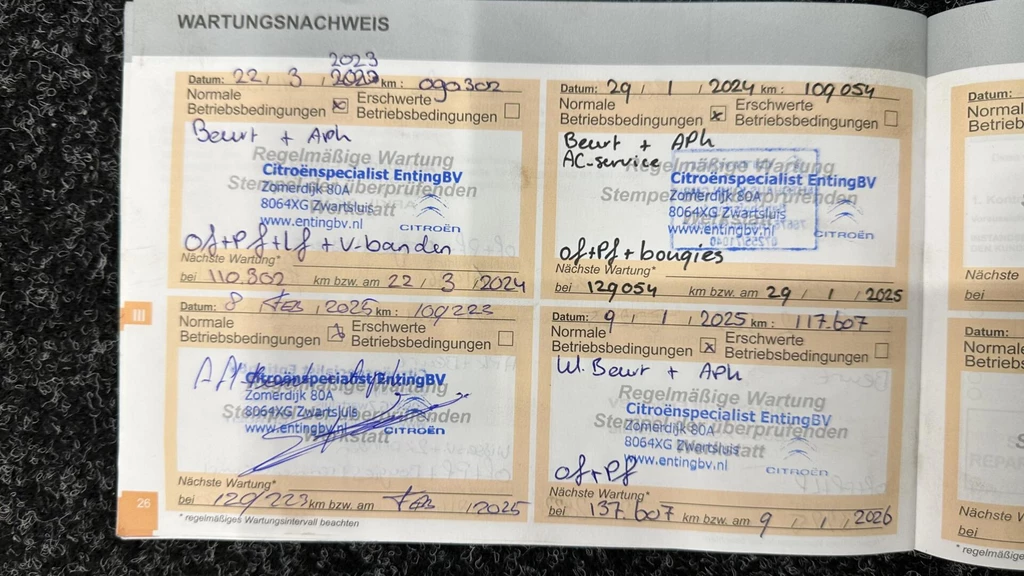 WARTUNGSNACHWEIS
Datum: 22, 3, 2023 km: 090302
Normale Betriebsbedingungen x Erschwerte Betriebsbedingungen
Beurt + APK
Regelmäßige Wartung
Citroënspecialist EntingBV
Stempel der überprüfenden
Zomerdijk 80A
8064XG Zwartsluis
Werkstatt
www.entingbv.nl
CITROËN
of+Pf+Lf + V-banden
Nächste Wartung*
bei 110.302 km bzw. am 22 / 3 / 2024
Datum: 29 / 1 / 2024 km: 109054
Normale Betriebsbedingungen x Erschwerte Betriebsbedingungen
Beurt + APK
AC-service
Regelmäßige Wartung
Citroënspecialist EntingBV
Stempel
Zomerdijk 80A
8064XG Zwartsluis
www.entingbv.nl
CITROËN
of+Pf+bougies
Nächste Wartung*
bei 129054 km bzw. am 29 / 1 / 2025
Datum: 8 Feb, 2025 km: 109223
Normale Betriebsbedingungen x Erschwerte Betriebsbedingungen
Citroënspecialist EntingBV
Zomerdijk 80A
Stempel der überprüfenden
8064XG Zwartsluis
www.entingbv.nl
CITROËN
Werkstatt
Nächste Wartung*
bei 129/223 km bzw. am Feb, 2025
Datum: 9 / 1 / 2025 km: 117.607
Normale Betriebsbedingungen x Erschwerte Betriebsbedingungen
Beurt + APK
Regelmäßige Wartung
Citroënspecialist EntingBV
Stempel der überprüfenden
Zomerdijk 80A
8064XG Zwartsluis
Werkstatt
www.entingbv.nl
CITROËN
of+Pf
Nächste Wartung*
bei 137.607 km bzw. am 9 / 1 / 2026
III
26
* regelmäßiges Wartungsintervall beachten
Datum:
Nächste
bei
Datum:
Nächste W
bei
* regelmäßig